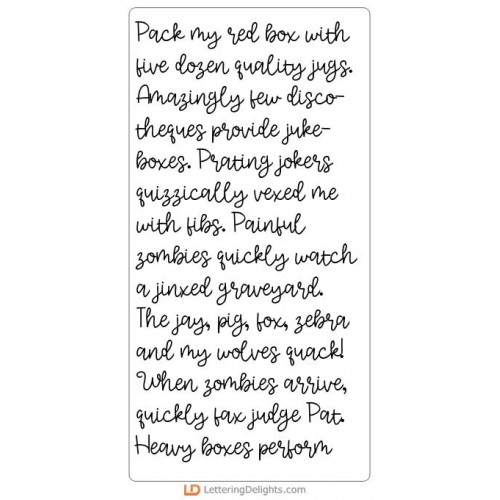 Pack my red box with
five dozen quality jugs.
Amazingly few disco-
theques provide juke-
boxes. Prating jokers
quizzically vexed me
with fibs. Painful
zombies quickly watch
a jinxed graveyard.
The jay, pig, fox, zebra
and my wolves quack!
When zombies arrive,
quickly fax judge Pat.
Heavy boxes perform
LD LetteringDelights.com